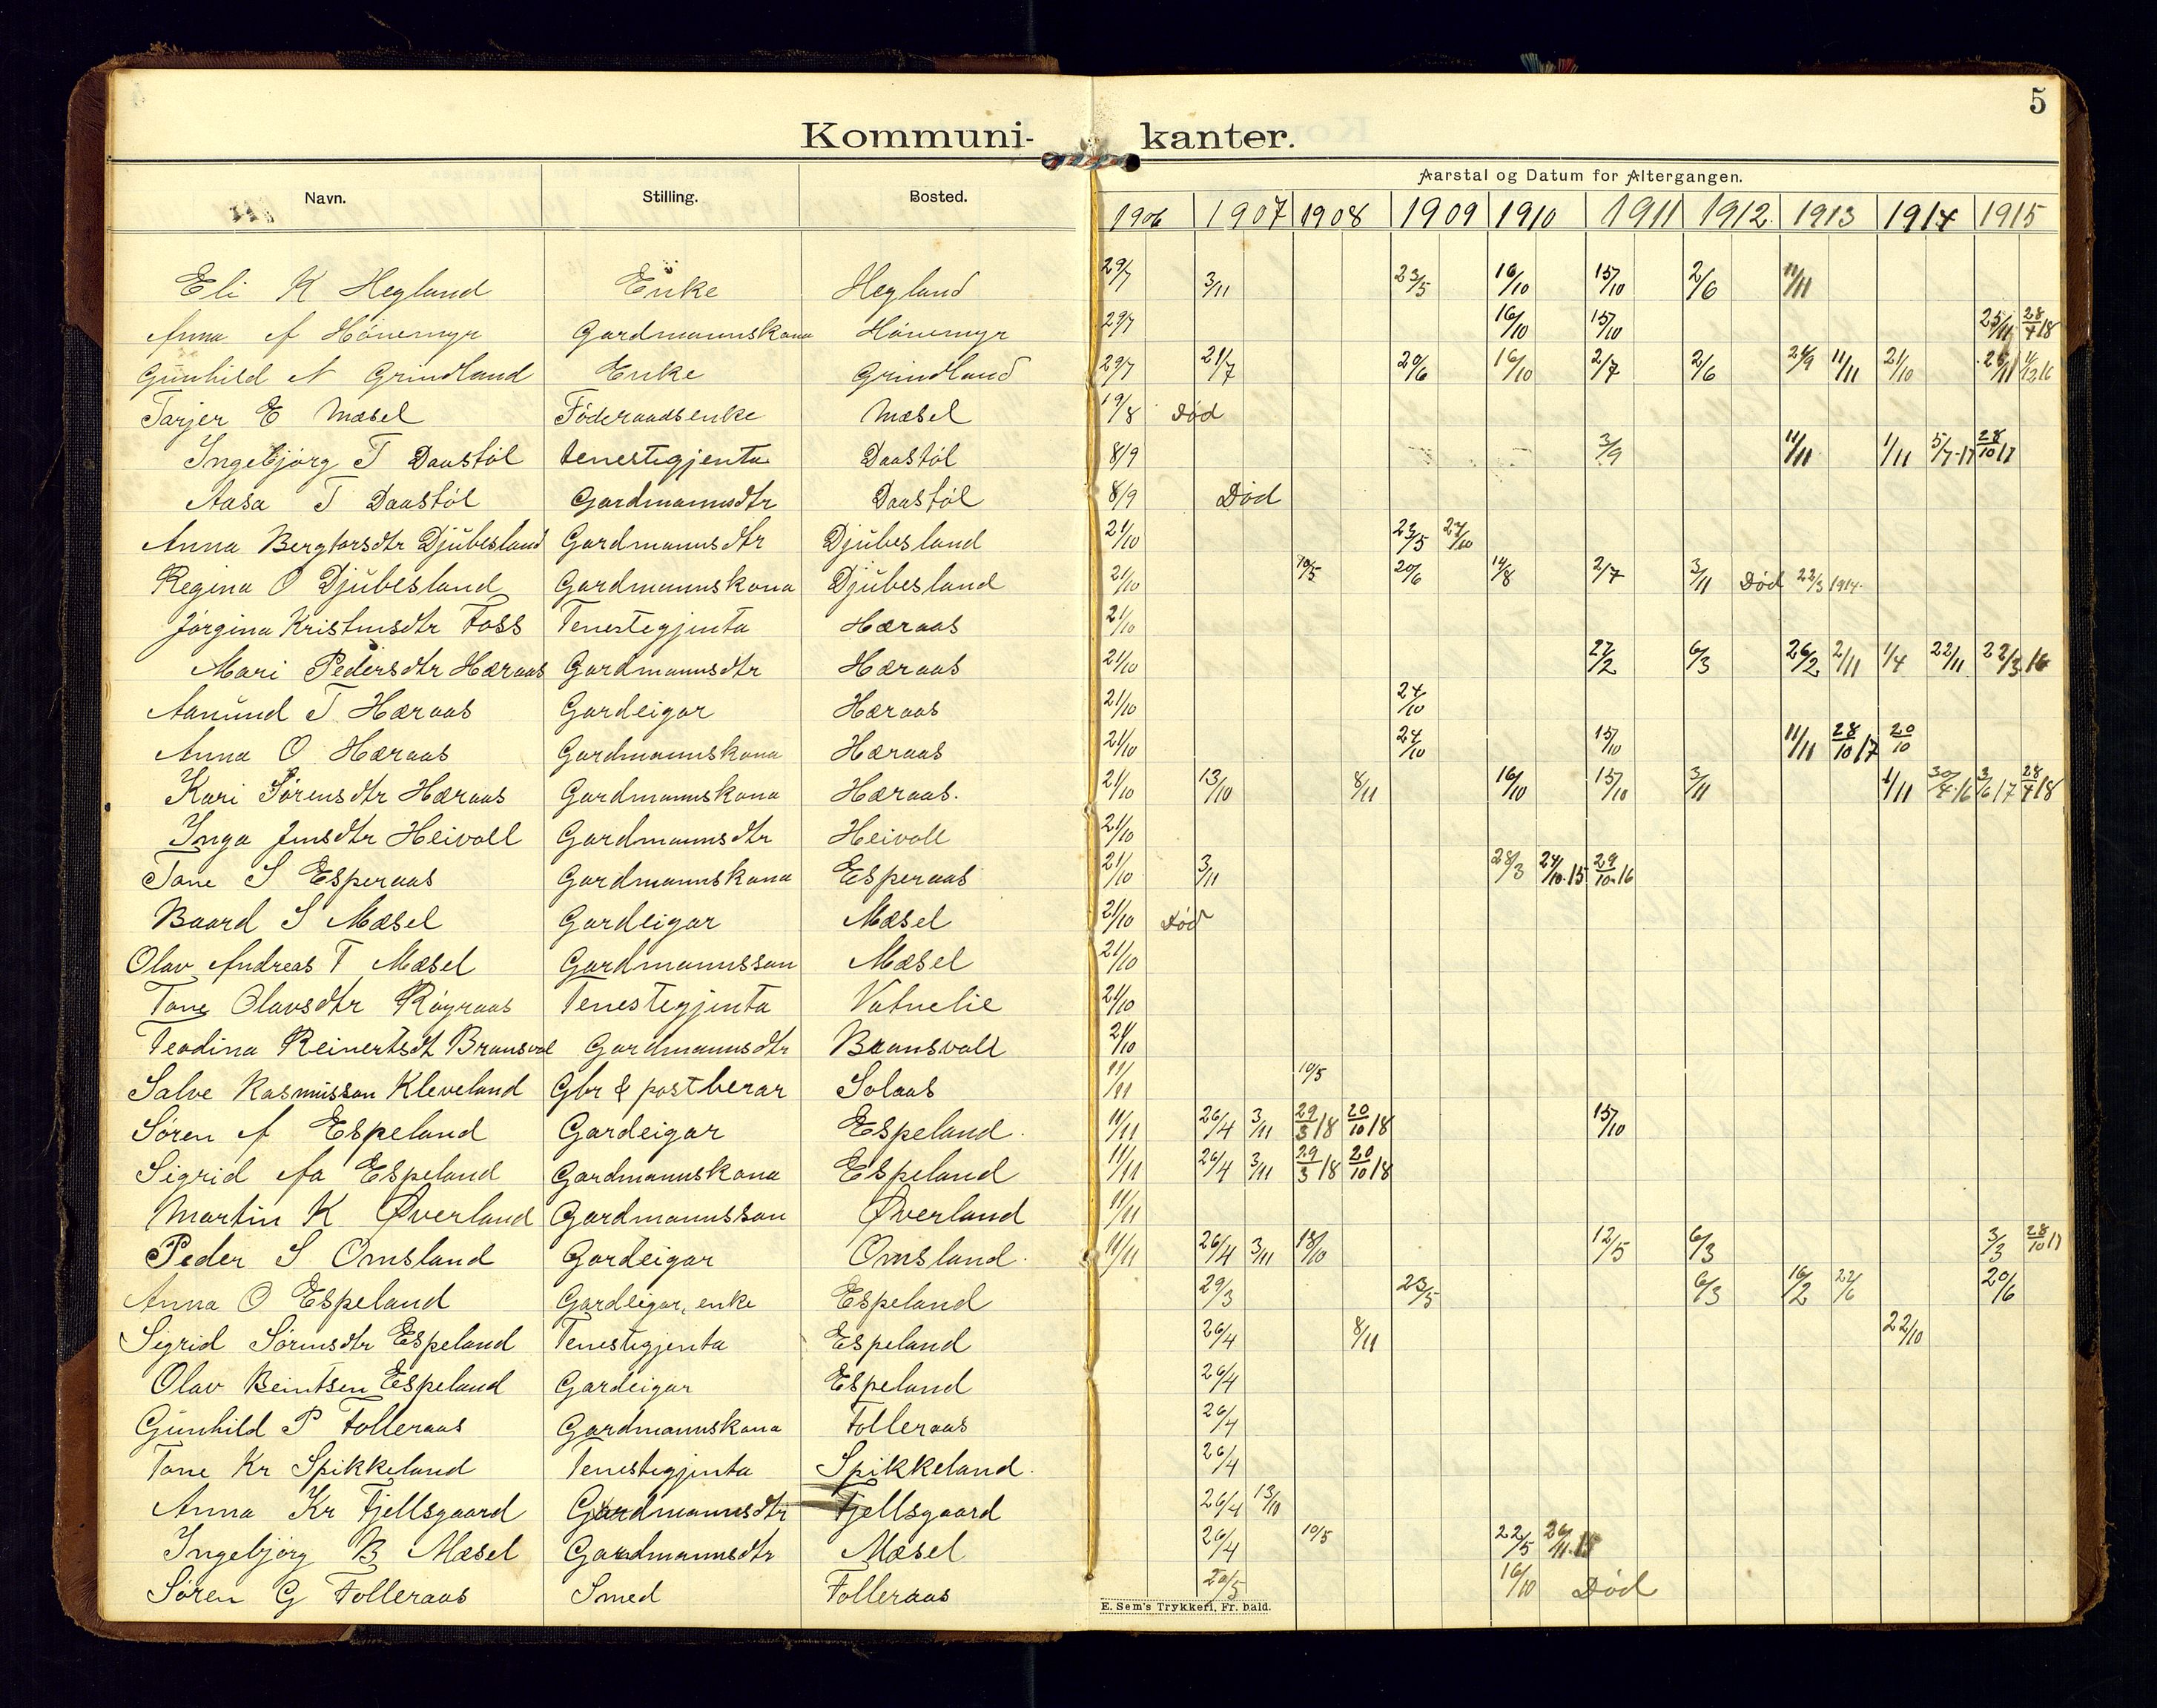 5
Kommuni- kanter.
Navn. Stilling. Bosted. Aarstal og Datum for Altergangen.
1906 1907 1908 1909 1910 1911 1912 1913 1914 1915
Eli K Hegland Enke Hegland 29/7 3/11 23/5 16/10 15/10 2/6 11/11
Anna A Hónemyr Gardmannskona Hónemyr 29/7 16/10 15/10 25/11 28/4 18
Gunhild N Grindland Enke Grindland 29/7 21/7 20/6 16/10 2/7 2/6 29/9 11/11 21/10 25/11
Tarjer E Mæsel Föderaadsenke Mæsel 19/8 Død
Ingebjórg T Daastól tenestegjenta Daastól 8/9 3/9 11/11 1/11 5/7-17 28/10 17
Aasa T Daastól Gardmannsdtr Daastól 8/9 Død
Anna Bergtorsdtr Djubesland Gardmannsdtr Djubesland 21/10 23/5 24/10
Regina O Djubesland Gardmannskona Djubesland 21/10 10/5 20/6 14/8 2/7 3/11 Død 22/3 1914.
Jórgina Kristensdtr Foss Tenestegjenta Hæraas 21/10
Mari Pedersdtr Hæraas Gardmannsdtr Hæraas 21/10 27/2 6/3 26/2 2/11 1/4 22/11 22/3 16
Aanund T Hæraas Gardeigar Hæraas 21/10 24/10
Anna O Hæraas Gardmannskona Hæraas 21/10 24/10 15/10 11/11 28/10 17 20/10
Kari Sórensdtr Hæraas Gardmannskona Hæraas. 21/10 13/10 8/11 16/10 15/10 3/11 1/11 30/4 16 3/6 17 28/4 18
Inga Jensdtr Heivoll Gardmannsdtr Heivoll 21/10
Tone S Esperaas Gardmannskona Esperaas 21/10 3/11 28/3 24/10.15 29/10.16
Baard S Mæsel Gardeigar Mæsel 21/10 Død
Olav Andreas T Mæsel Gardmannsson Mæsel 21/10
Tone Olavsdtr Róyraas Tenestegjenta Vatnelie 21/10
Teodina Reinertsdt Bransvol Gardmannsdtr Braansvoll 21/10
Salve Rasmusson Kleveland Gbr & postberar Solaas 11/11 10/5
Sóren A Espeland Gardeigar Espeland. 11/11 26/4 3/11 29/3 18 20/10 18 15/10
Sigrid Aa Espeland Gardmannskona Espeland 11/11 26/4 3/11 29/3 18 20/10 18
Martin K Øverland Gardmannsson Øverland 11/11
Peder S Omsland Gardeigar Omsland. 11/11 26/4 3/11 18/10 12/5 6/3 3/3 28/10 17
Anna O Espeland Gardeigar, enke Espeland 29/3 23/5 6/3 16/2 22/6 20/6
Sigrid Sórensdtr Espeland Tenestegjenta Espeland 26/4 8/11 22/10
Olav Beintsen Espeland Gardeigar Espeland 26/4
Gunhild P Folleraas Gardmannskona Folleraas 26/4
Tone Kr Spikkeland Tenestegjenta Spikkeland. 26/4
Anna Kr Fjellsgaard Gardmannsdtr Fjellsgaard 26/4 13/10
Ingebjórg B Mæsel Gardmannsdtr Mæsel 26/4 10/5 22/5 26/11
Sóren G Folleraas Smed Folleraas 20/5 16/10 Død
E. Sem's Trykkeri, Fr. hald.